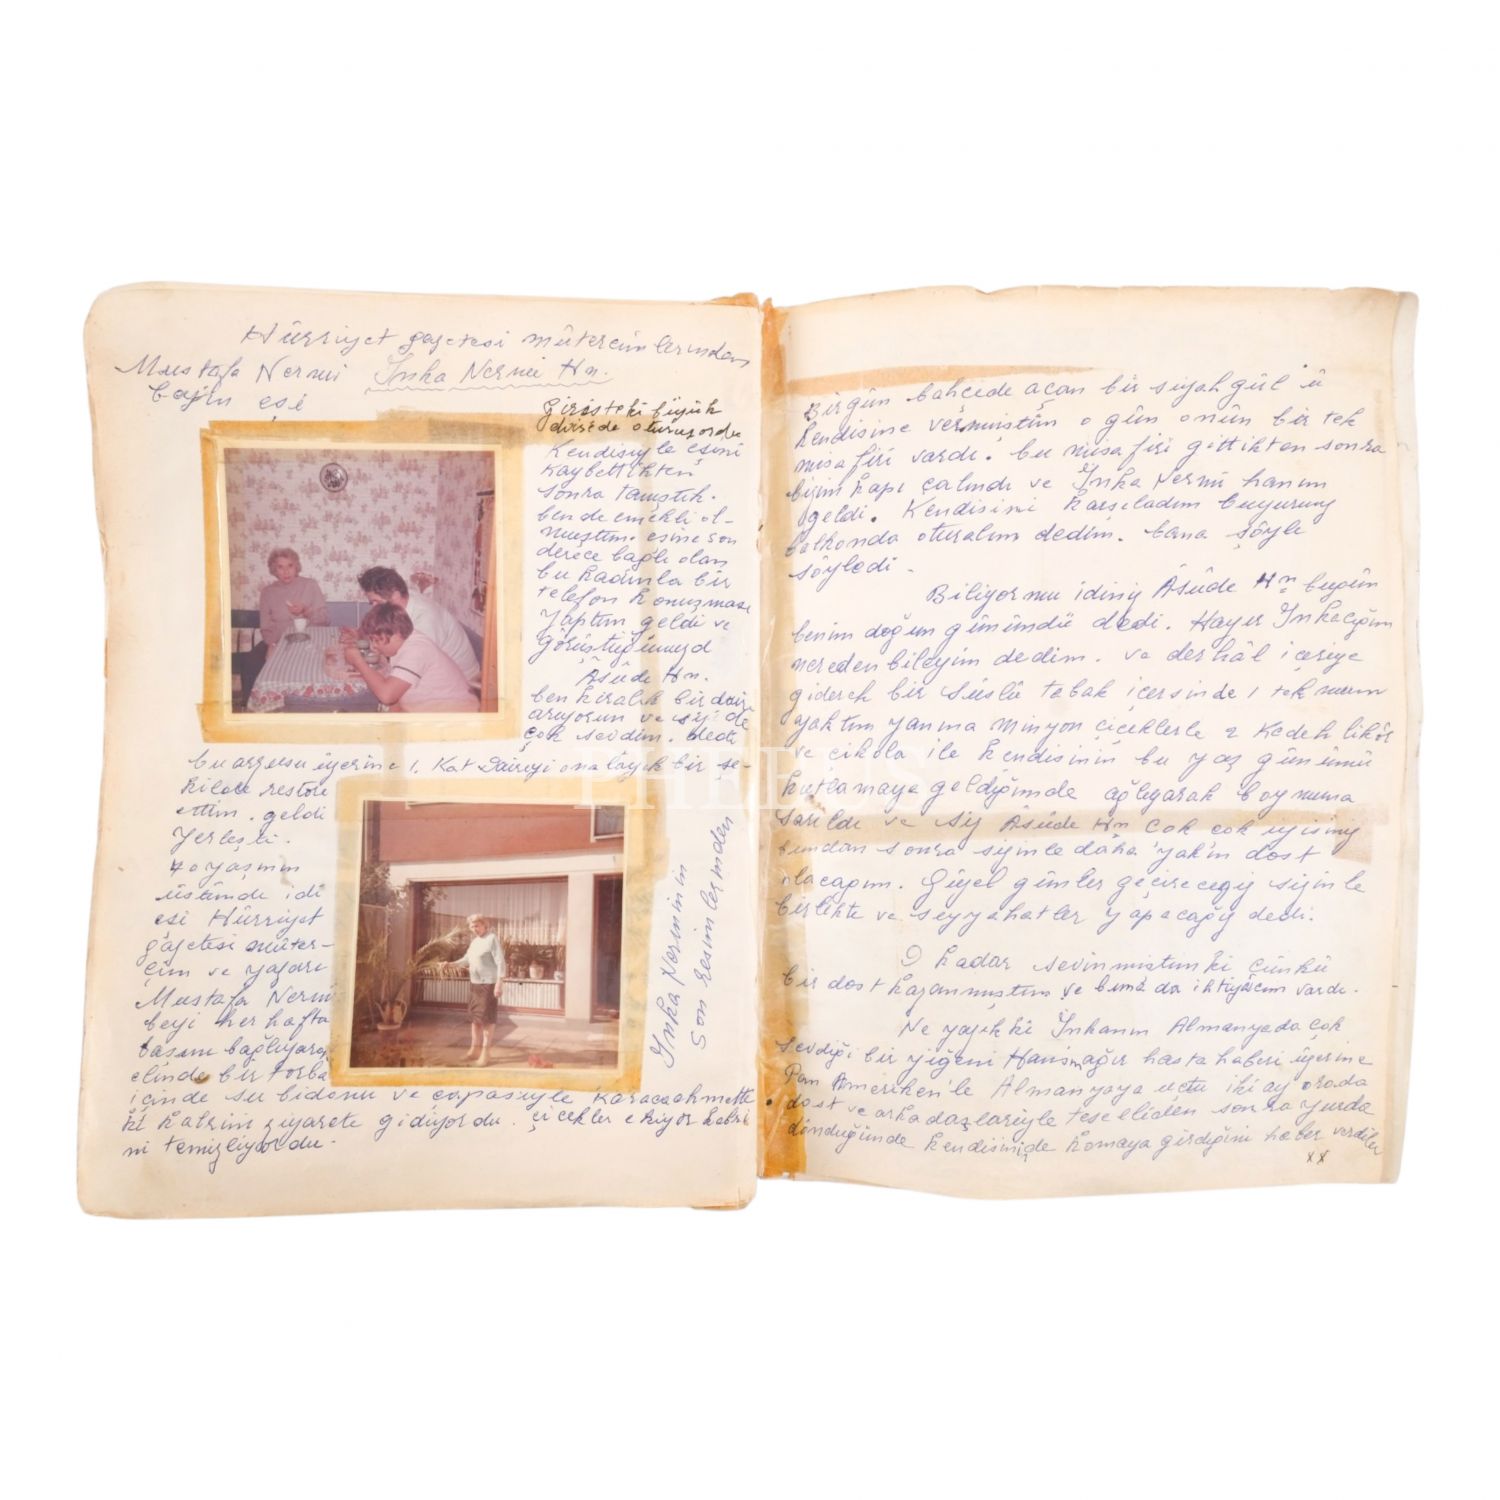 Hürriyet gazetesi mütercimlerinden
Mustafa Nermi İnka Nermi Hn.
bayin eşi
Girişteki büyük
dairede oturuyordu
Kendisiyle eşini
Kaybettikten
sonra tanıştık.
ben de emekli ol-
muştum. eşine son
derece bağlı olan
bu kadınla bir
telefon konuşması
yaptım geldi ve
görüştüğümüzd
Âsûde Hn.
ben kiralık bir daire
arıyorum ve sizi de
çok sevdim. dedi
bu arzusu üzerine 1. Kat Daireyi ona layık bir şe-
kilde restore
ettim. geldi
yerleşti.
70 yaşının
üstünde idi
eşi Hürriyet
gazetesi müter-
cim ve yazarı
Mustafa Nermi
beyi her hafta
başını bağlıyarak
elinde bir torba
içinde su bidonu ve çapasıyle Karacaahmette
ki kabrini ziyarete gidiyordu. çiçekler ekiyor kabri
ni temizliyordu.
İnka Nerminin
son resimlerinden
Birgün bahçede açan bir siyah gül'ü
kendisine vermiştim o gün onun bir tek
misafiri vardı. bu misafiri gittikten sonra
bizim kapı çalındı ve İnka Nermi hanım
geldi. Kendisini karşıladım buyurunuz
balkonda oturalım dedim. bana şöyle
söyledi.
Biliyormu idiniz Âsûde Hn bugün
benim doğum günümdü dedi. Hayır İnkacığım
nereden bileyim dedim. ve derhâl içeriye
giderek bir süslü tabak içersinde 1 tek mum
yaktım yanına minyon çiçeklerle 2 Kadeh likör
ve çikola ile kendisinin bu yaş gününü
kutlamaya geldiğimde ağlıyarak boynuma
sarıldı ve siz Âsûde Hn çok çok iyisiniz
bundan sonra sizinle dâha yakın dost
olacağım. Güzel günler geçireceğiz sizinle
birlikte ve seyyahatler yapacağız dedi.
O kadar sevinmiştim ki çünkü
bir dost kazanmıştım ve buna da ihtiyâcım vardı.
Ne yazık ki İnkanın Almanyada çok
sevdiği bir yiğeni Hansın ağır hasta haberi üzerine
Pan Ameriken'le Almanyaya uçtu iki ay orada
dost ve arkadaşlariyle teselliden sonra yurda
döndüğümde kendisinide komaya girdiğini haber verdiler
xx
PHEBUS